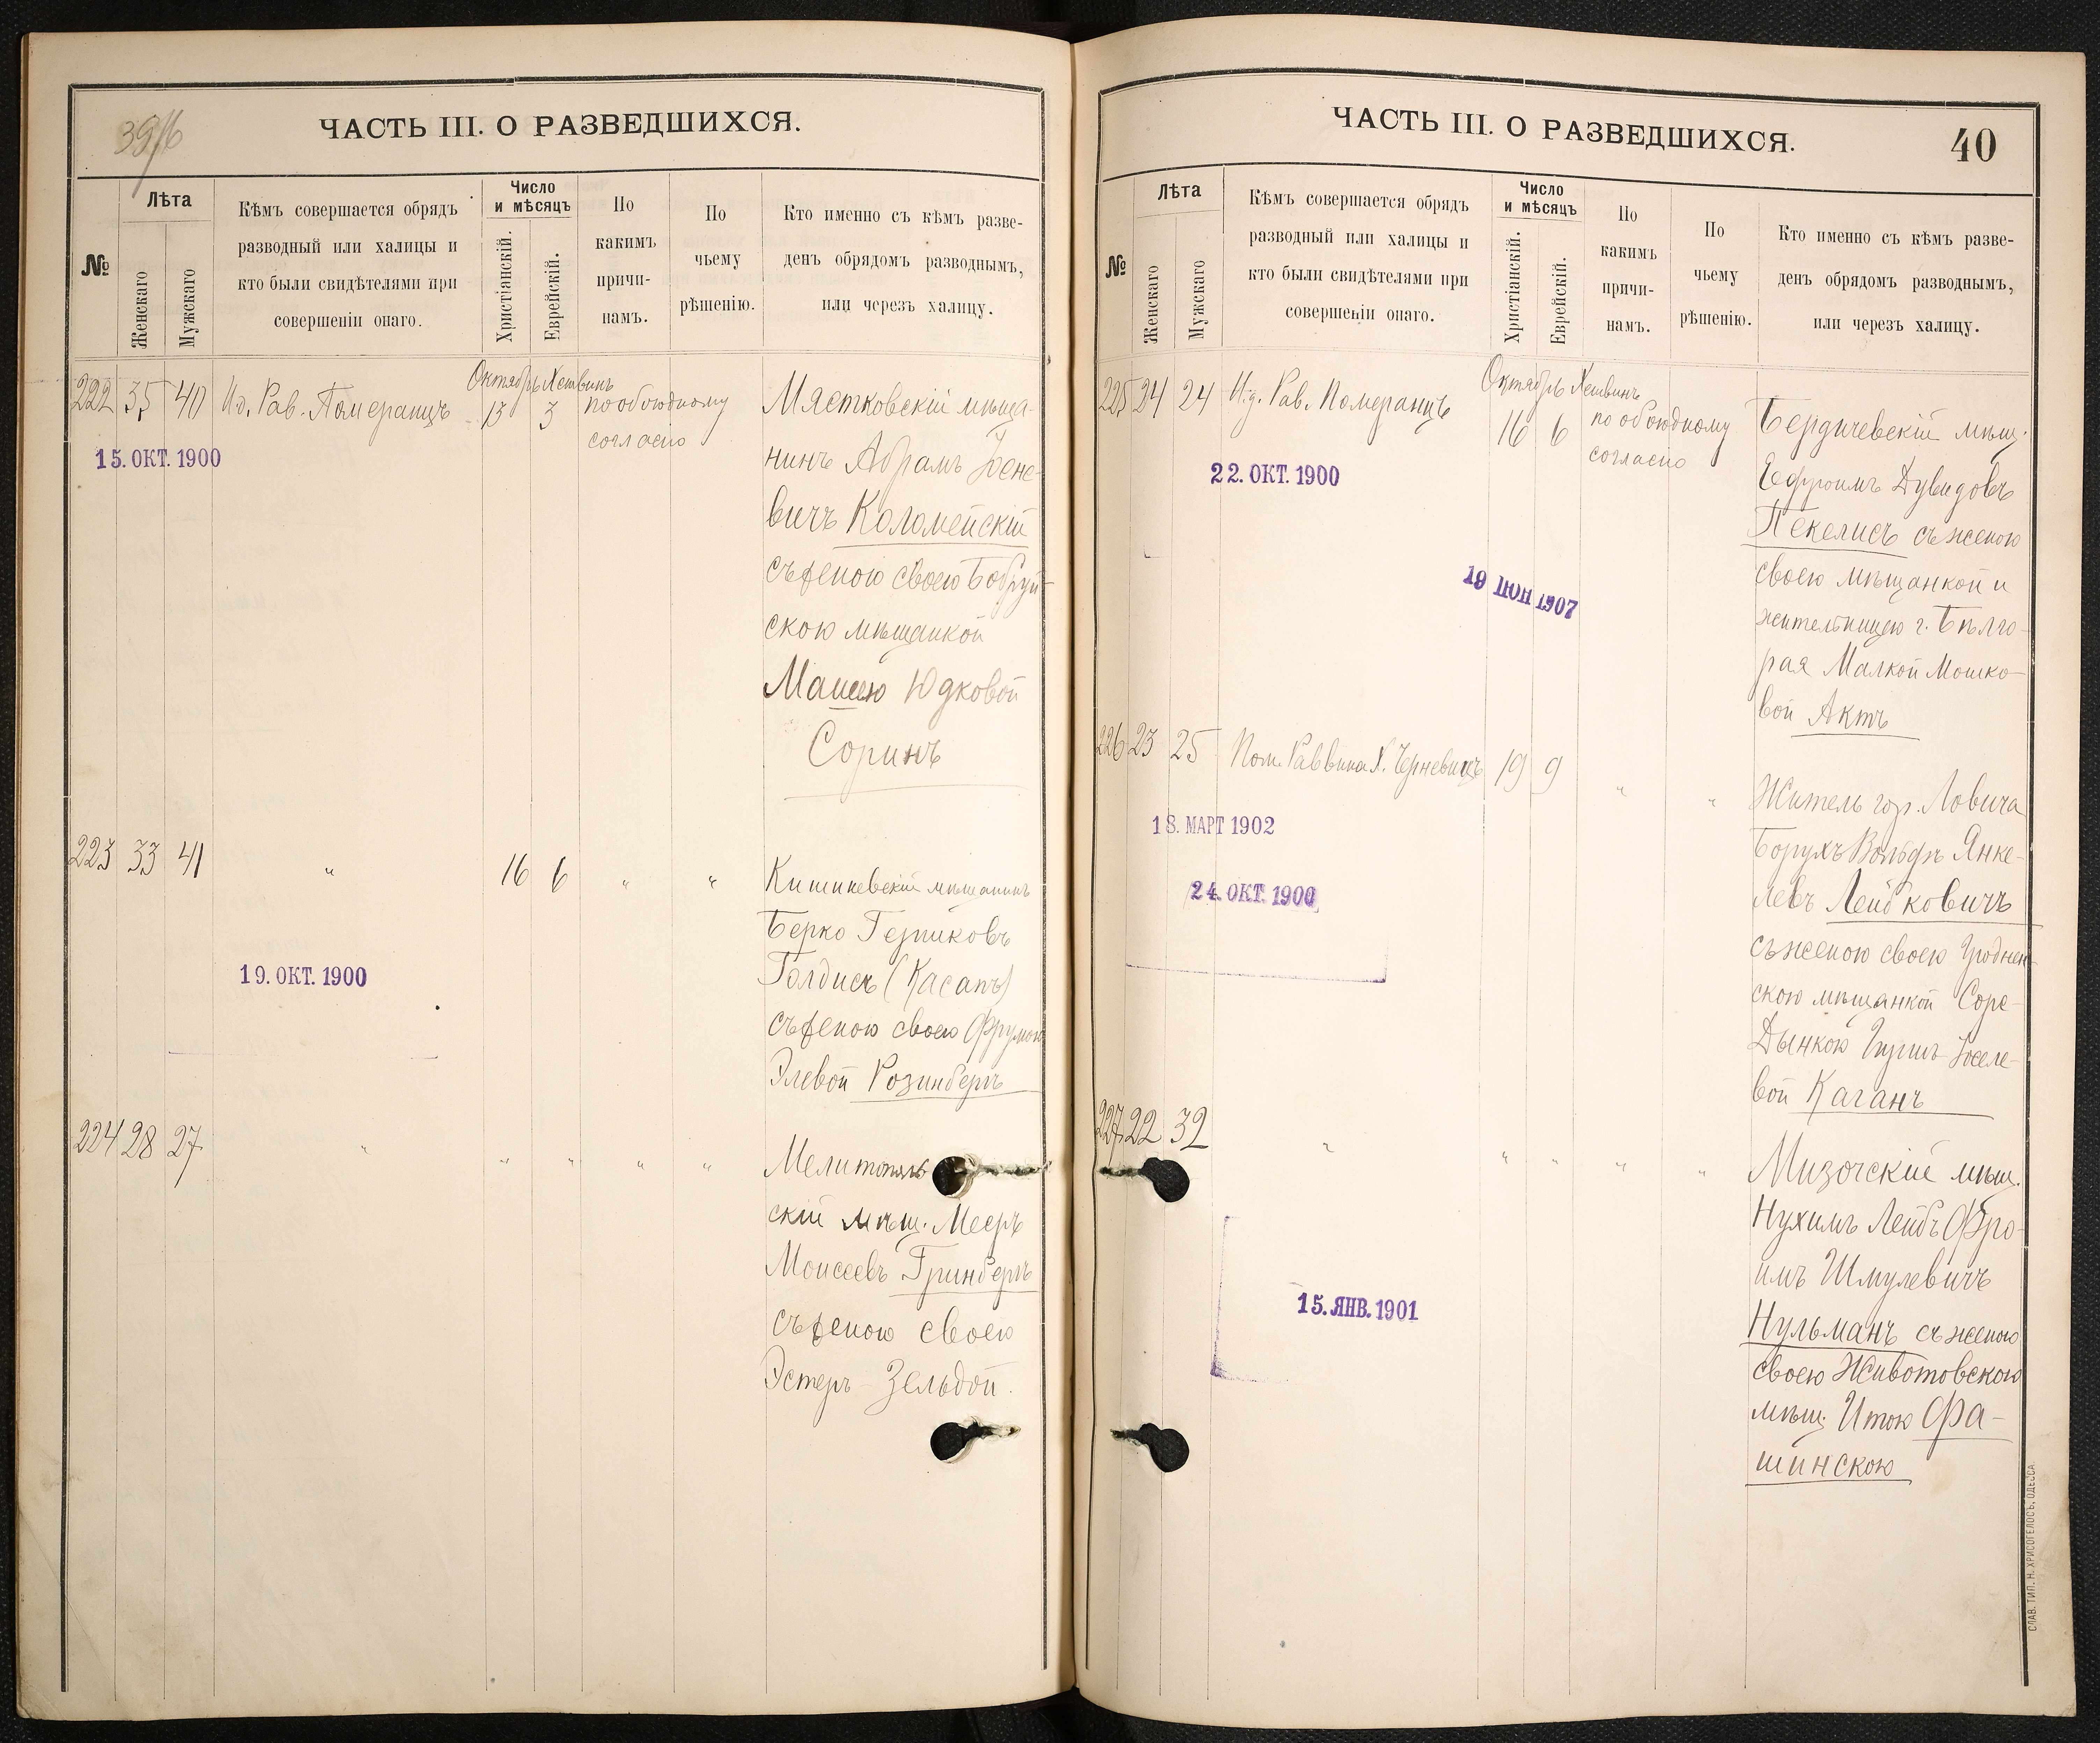 39/б
ЧАСТЬ III. О РАЗВЕДШИХСЯ.
№
Лѣта
Женскаго
Мужскаго
Кѣмъ совершается обрядъ
разводный или халицы и
кто были свидѣтелями при
совершеніи онаго.
Число
и мѣсяцъ
Христіанскій.
Еврейскій.
По
какимъ
причи-
намъ.
По
чьему
рѣшенію.
Кто именно съ кѣмъ разве-
денъ обрядомъ разводнымъ,
или черезъ халицу.
222 35 40 И.д. Рав. Померанцъ
Октябрь Хешвинъ
13 3
по обоюдному
согласію
15. ОКТ. 1900
Мястковскій мѣща-
нинъ Абрамъ
вичъ Коломейскій
съ женою своею Бобруй-
скою мѣщанкой
Машею Юдковой
Соринъ
223 33 41 " 16 6 " "
19. ОКТ. 1900
Кишиневскій мѣщанинъ
Берко
Голдисъ (Касапъ)
съ женою своею Фрумою
Элевой Розинбергъ
224 28 27 " " " " "
Мелитополь
скій мѣщ. Мееръ
Моисеевъ Гринбергъ
съ женою своею
Эстеръ Зельдой.
ЧАСТЬ III. О РАЗВЕДШИХСЯ.
40
№
Лѣта
Женскаго
Мужскаго
Кѣмъ совершается обрядъ
разводный или халицы и
кто были свидѣтелями при
совершеніи онаго.
Число
и мѣсяцъ
Христіанскій.
Еврейскій.
По
какимъ
причи-
намъ.
По
чьему
рѣшенію.
Кто именно съ кѣмъ разве-
денъ обрядомъ разводнымъ,
или черезъ халицу.
225 24 24 И.д. Рав. Померанцъ
Октябрь Хешвинъ
16 6
по обоюдному
согласію
22. ОКТ. 1900
19 ІЮН 1907
Бердичевскій мѣщ.
Ефроимъ Дувидовъ
Пекелисъ съ женою
своею мѣщанкой и
жительницею г. Бѣлго-
рая Малкой Мошко-
вой Актъ
226 23 25 Пом. Раввина Х. Черневицъ 19 9 " "
18. МАРТ 1902
24. ОКТ. 1900
Житель гор. Ловича
Борухъ Вольфъ Янке-
левъ Лейбковичъ
съ женою своею Гроднен-
скою мѣщанкой Соре-
Дынкою
вой Каганъ
227 22 32 " " " " "
15. ЯНВ. 1901
Мизочскій мѣщ.
Нухимъ Лейбъ Фро-
имъ Шмулевичъ
Нульманъ съ женою
своею Животовскою
мѣщ. Итою Фа-
шинскою
СЛАВ. ТИП. Н. ХРИСОГЕЛОСЪ, ОДЕССА